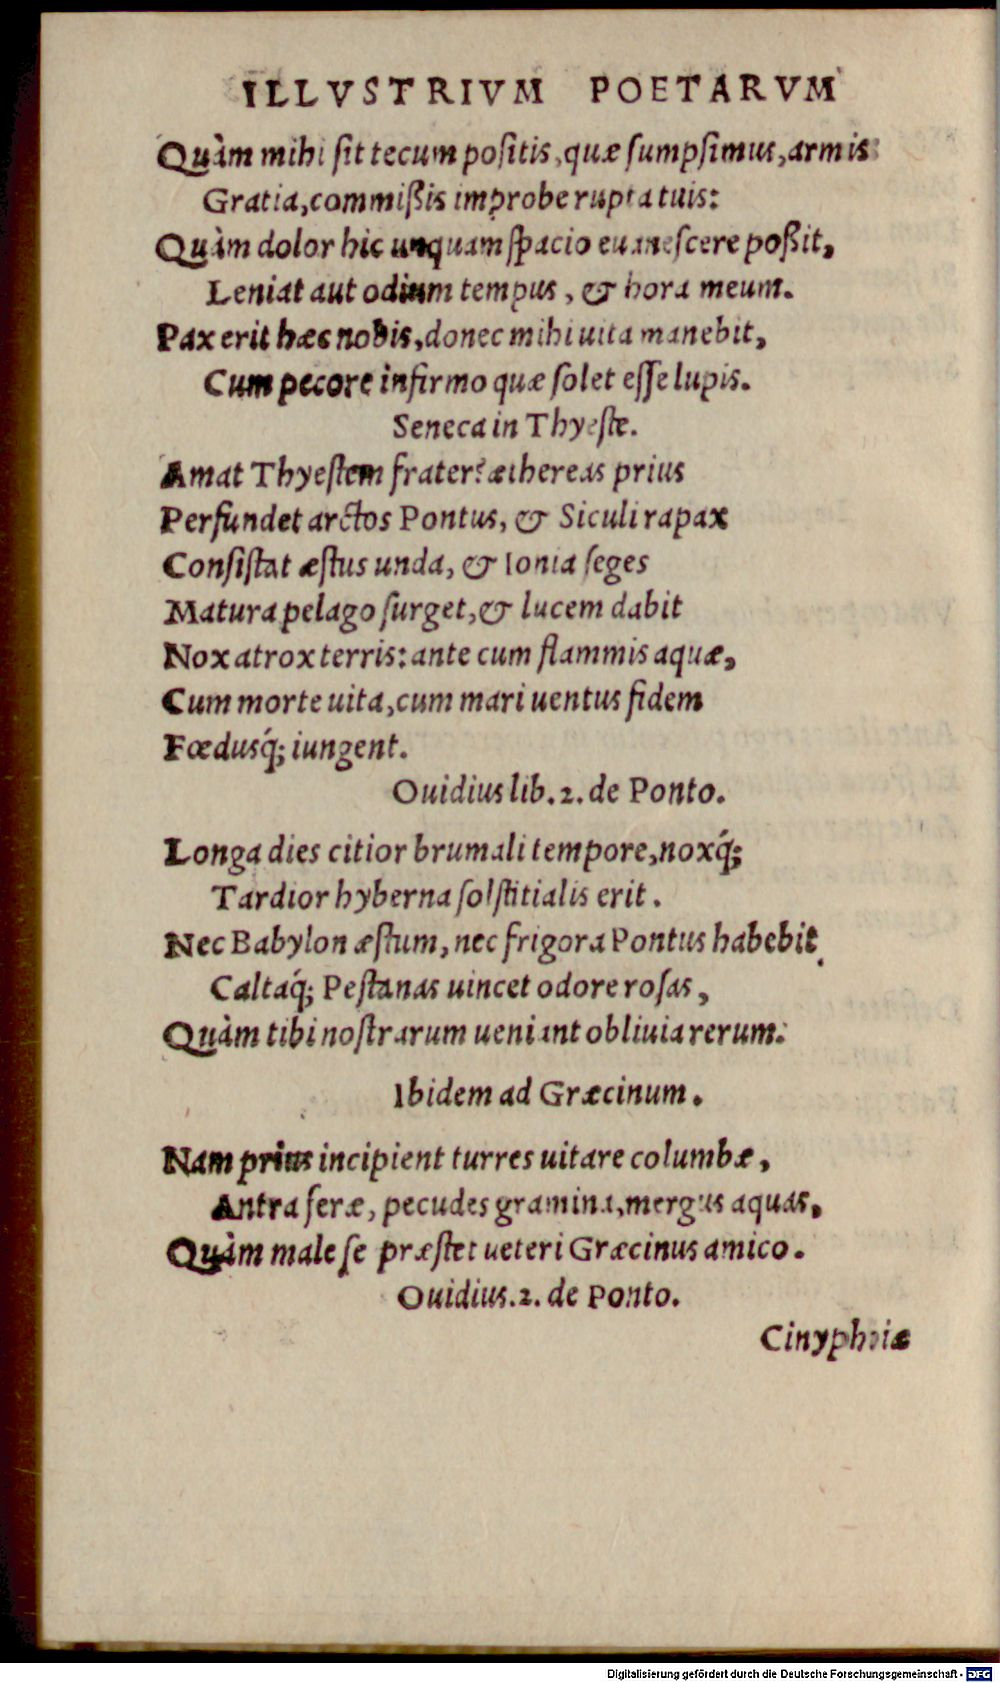 ILLVSTRIVM POETARVM
Quàm mihi ſit tecum poſitis, quæ ſumpſimus, armis
Gratia, commißis improbe rupta tuis:
Quàm dolor hic unquam ſpacio euaneſcere poßit,
Leniat aut odium tempus, & hora meum.
Pax erit hæc nobis, donec mihi uita manebit,
Cum pecore infirmo quæ ſolet eſſe lupis.
Seneca in Thyeſte.
Amat Thyeſtem frater? æthereas prius
Perfundet arctos Pontus, & Siculi rapax
Conſiſtat æſtus unda, & Ionia ſeges
Matura pelago ſurget, & lucem dabit
Nox atrox terris: ante cum flammis aquæ,
Cum morte uita, cum mari uentus fidem
Fœdusq́; iungent.
Ouidius lib. 2. de Ponto.
Longa dies citior brumali tempore, noxq́;
Tardior hyberna ſolſtitialis erit.
Nec Babylon æſtum, nec frigora Pontus habebit,
Caltaq́; Peſtanas uincet odore roſas,
Quàm tibi noſtrarum ueniant obliuia rerum:
Ibidem ad Græcinum.
Nam prius incipient turres uitare columbæ,
Antra feræ, pecudes gramina, mergus aquas,
Quàm male ſe præſtet ueteri Græcinus amico.
Ouidius. 2. de Ponto.
Cinyphiæ
Digitalisierung gefördert durch die Deutsche Forschungsgemeinschaft - DFG